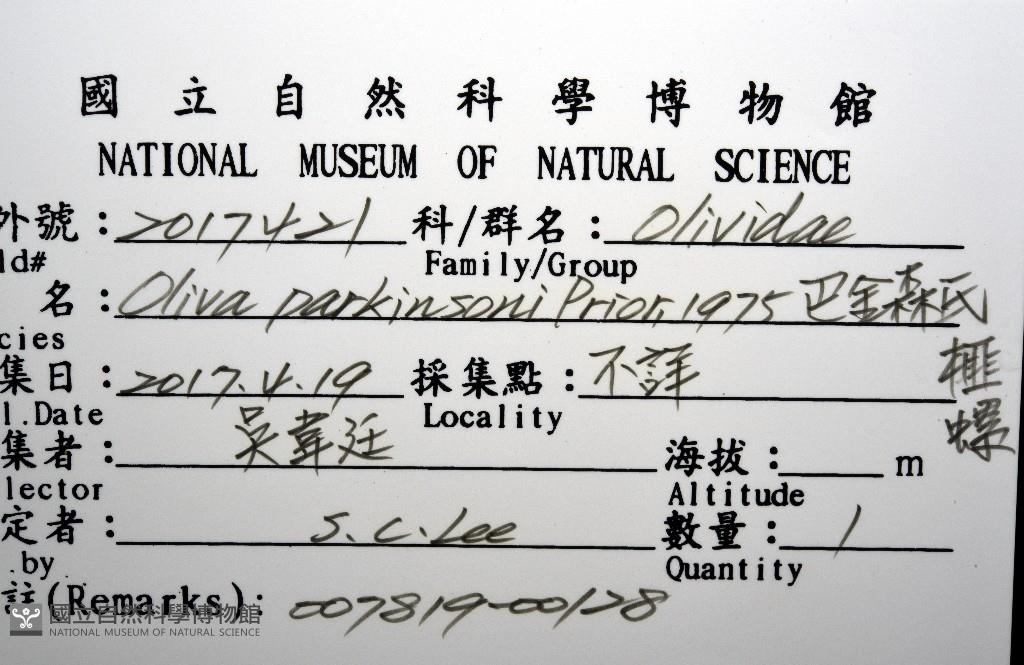 國立自然科學博物館
NATIONAL MUSEUM OF NATURAL SCIENCE
外號：2017421 科/群名：Olividae
ld# Family/Group
名：Oliva parkinsoni Prior, 1975 巴金森氏榧螺
cies
集日：2017.4.19 採集點：不詳
l.Date Locality
集者：吳韋廷 海拔： m
lector Altitude
定者： S.C.Lee 數量：1
.by Quantity
註(Remarks): 007819-00128
國立自然科學博物館
NATIONAL MUSEUM OF NATURAL SCIENCE